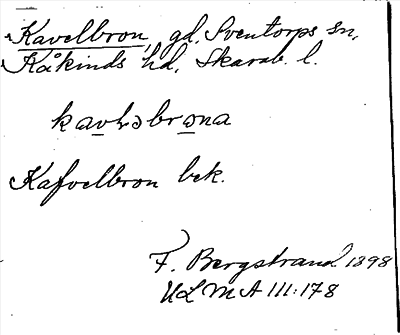 Kavelbron, gd, Sventorps sn,
Kåkinds hd, Skarab. l.
kavləbrωna
Kafvelbron bek.
F. Bergstrand 1898
ULMA 111:178